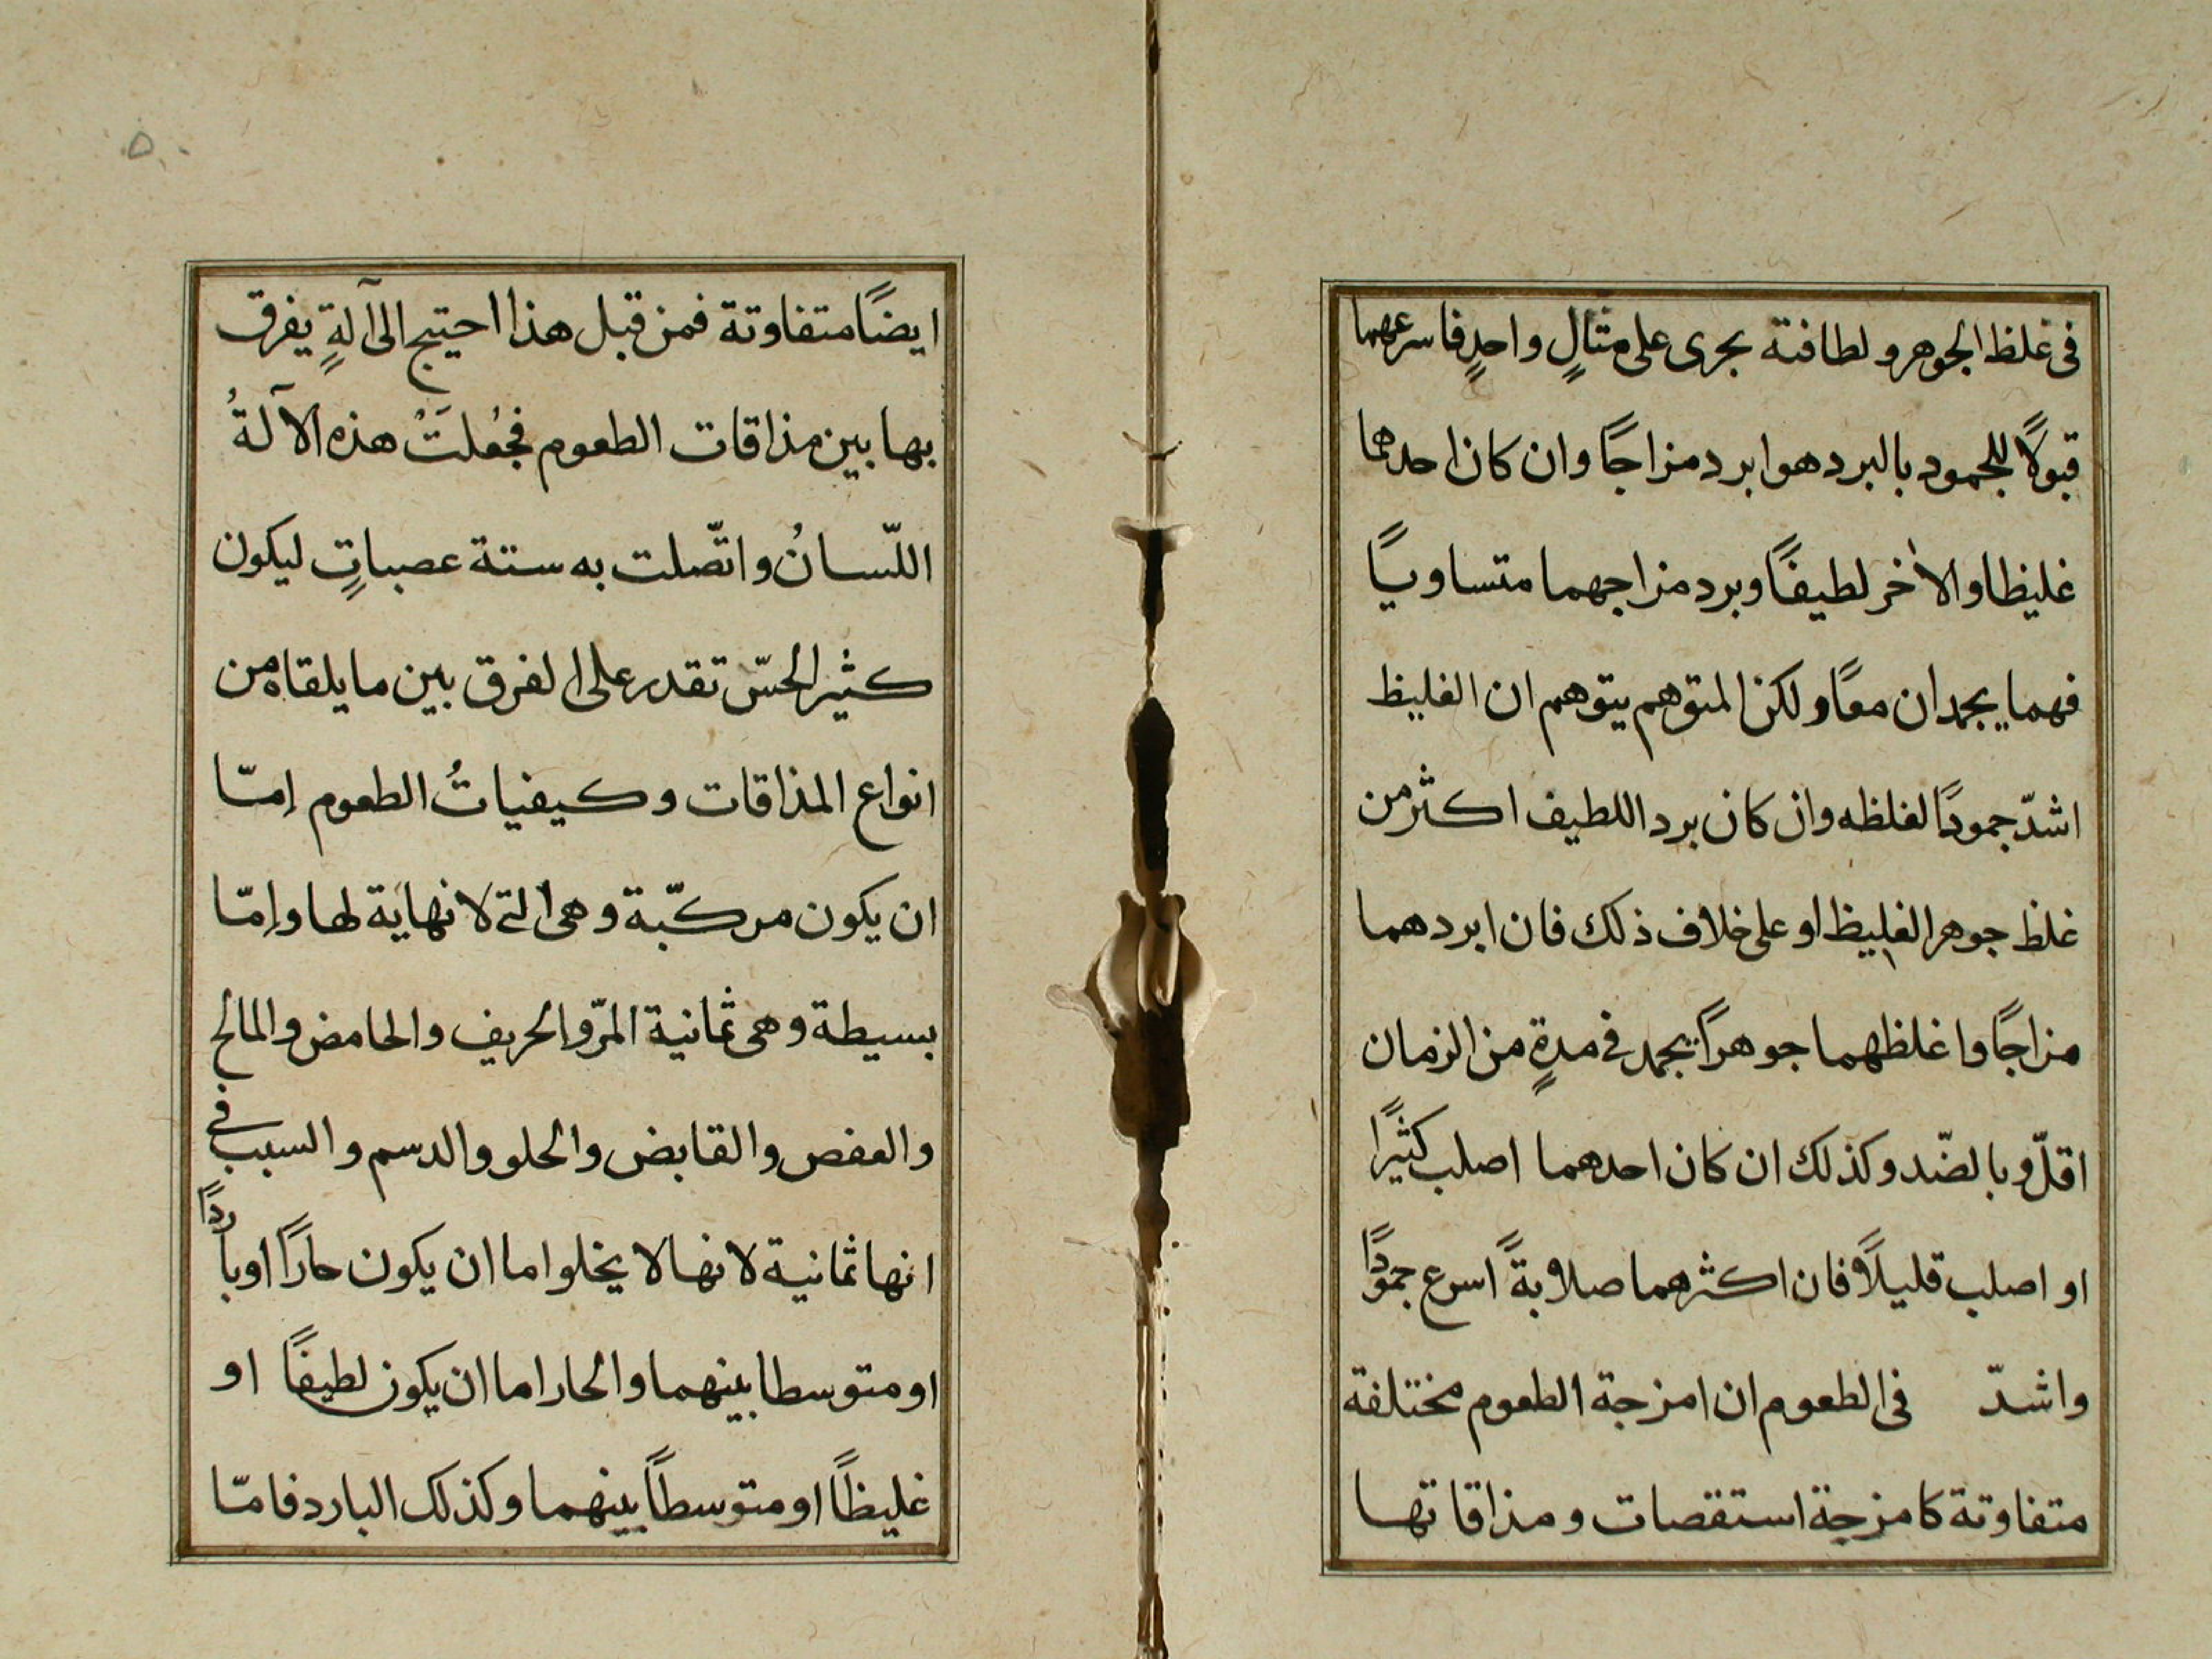 فى غلظ الجوهر ولطافته يجرى على مثالٍ واحدٍ فاسرعهما
قبولًا للجمود بالبرد هو ابرد مزاجًا وان كان احدهما
غليظا والاخر لطيفًا وبرد مزاجهما متساويًا
فهما يجمدان معًا ولكن المتوهم يتوهم ان الغليظ
اشدّ جمودًا لغلظه وان كان برد اللطيف اكثر من
غلظ جوهر الغليظ او على خلاف ذلك فان ابردهما
مزاجًا واغلظهما جوهرًا يجمد فى مدةٍ من الزمان
اقلّ وبالضّد وكذلك ان كان احدهما اصلب كثيرًا
او اصلب قليلًا فان اكثرهما صلابةً اسرع جمودًا
واشدّ فى الطعوم ان امزجة الطعوم مختلفة
متفاوتة كامزجة استقصات ومذاقاتها
٥٠
ايضًا متفاوتة فمن قبل هذا احتيج الى آلةٍ يفرق
بها بين مذاقات الطعوم فجُعلَتْ هذه الآلةُ
اللّسانُ واتّصلت به ستة عصباتٍ ليكون
كثير الحسّ تقدر على الفرق بين ما يلقاه من
انواع المذاقات وكيفياتُ الطعوم إمّا
ان يكون مركّبة وهى التى لا نهاية لها وإمّا
بسيطة وهى ثمانية المرّ والحريف والحامض والمالح
والعفص والقابض والحلو والدسم والسبب فى
انها ثمانية لانها لا يخلوا اما ان يكون حارًا او باردًا
او متوسطا بينهما والحار اما ان يكون لطيفًا او
غليظًا او متوسطًا بينهما وكذلك البارد فامّا